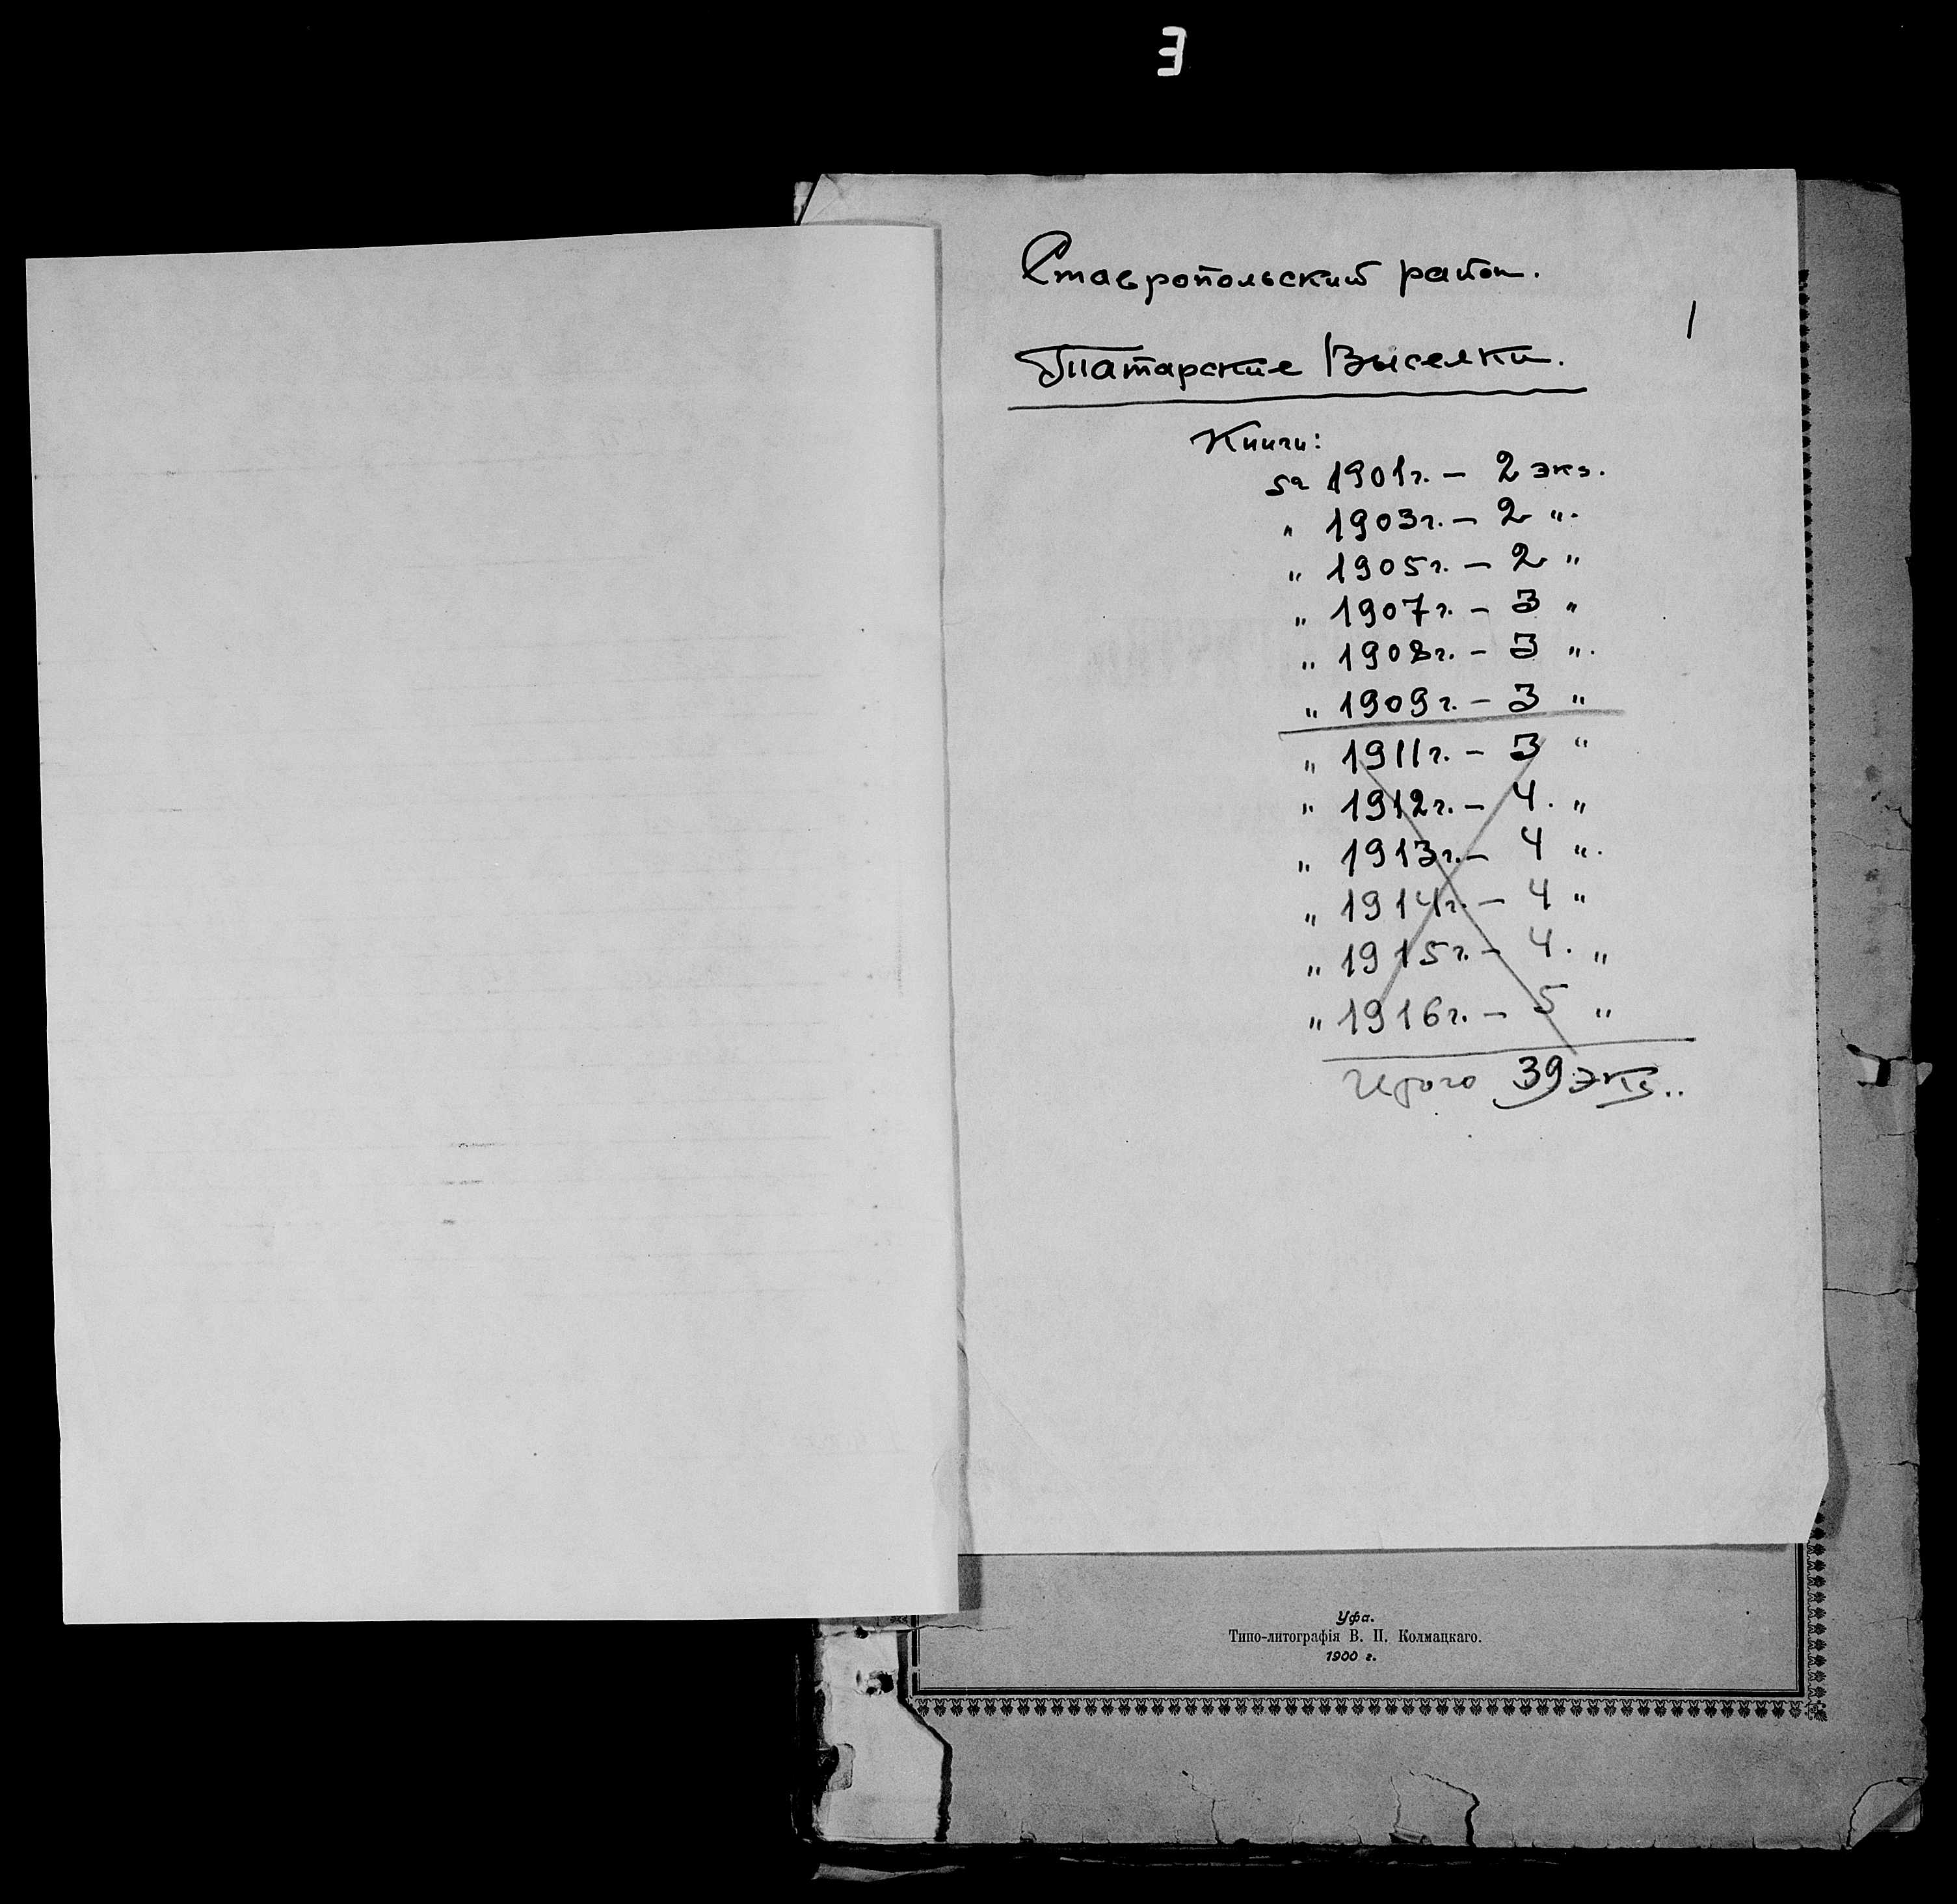 3
Ставропольский район.
1
Татарские Выселки.
Книги:
за 1901г. – 2 экз.
„ 1903г. – 2 „.
„ 1905г. – 2 „
„ 1907г. – 3 „
„ 1908г. – 3 „.
„ 1909г. – 3 „
„ 1911г. – 3 „
„ 1912г. – 4. „
„ 1913г. – 4 „.
„ 1914г. – 4 „
„ 1915г. – 4. „
„ 1916г. – 5 „
Итого 39 экз..
Уфа.
Типо-литографія В. П. Колмацкаго.
1900 г.